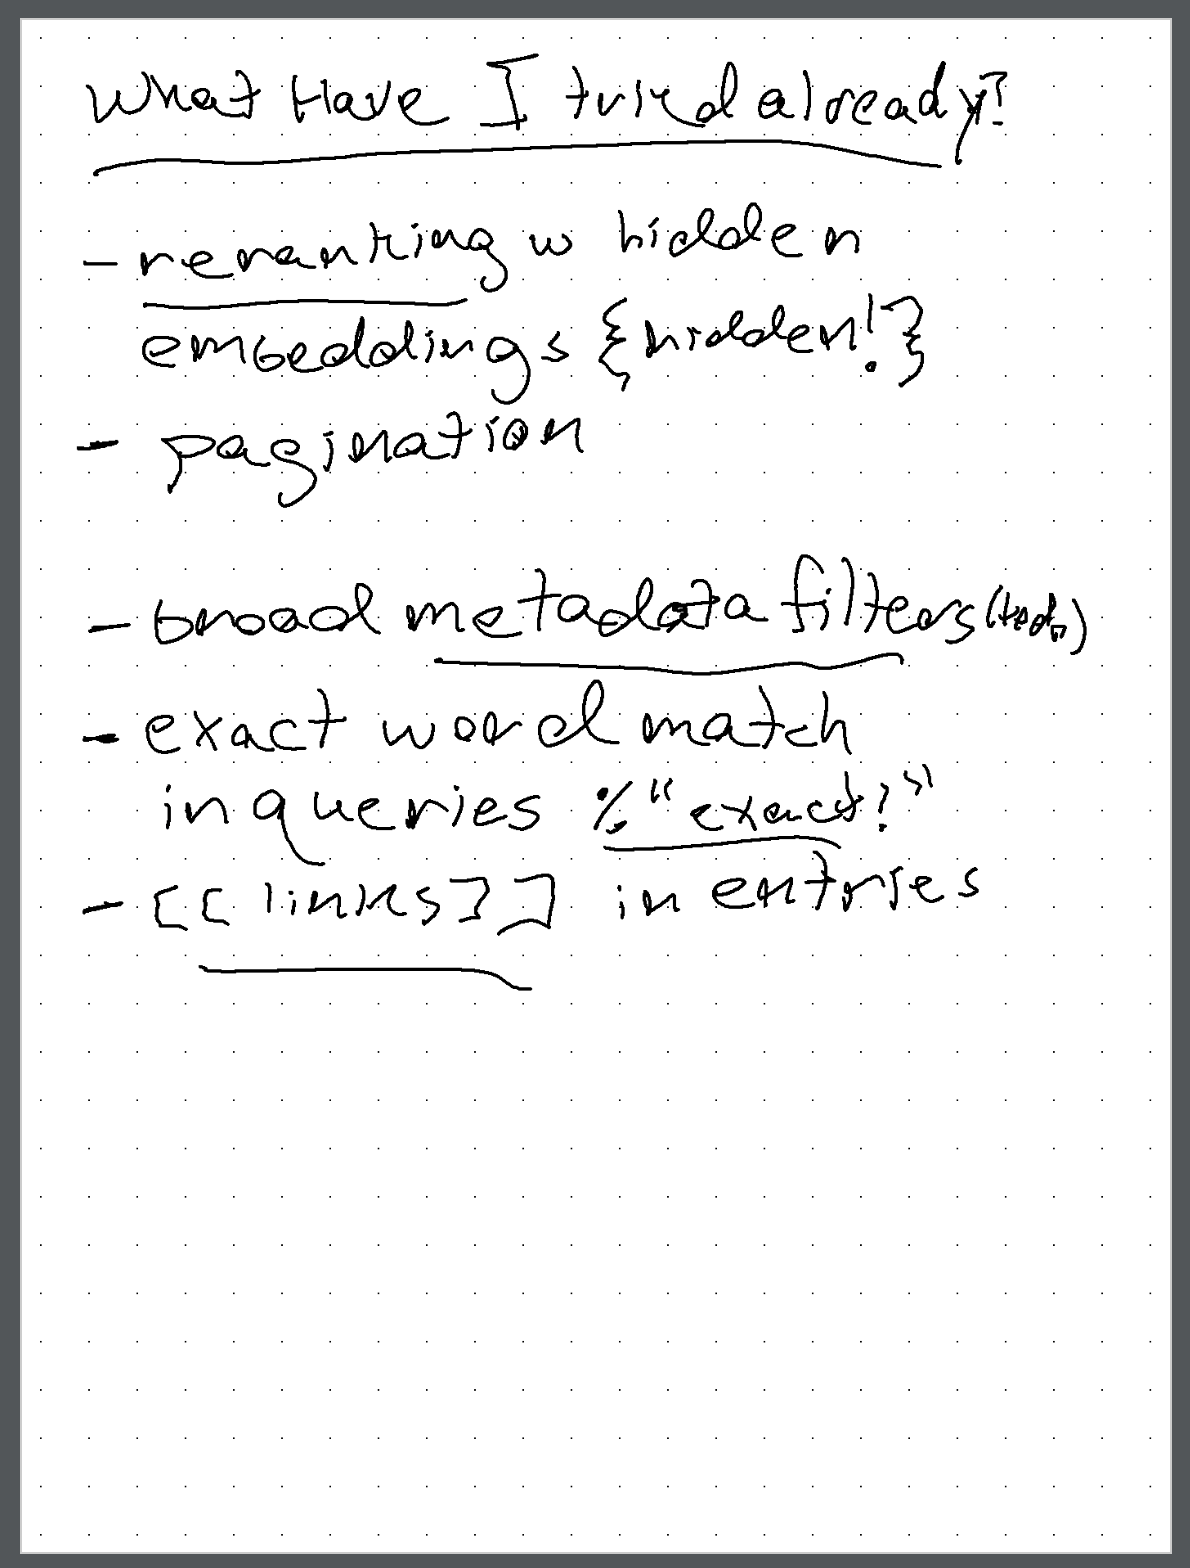 What Have I tried already?
- reranking w hidden
embeddings {hidden!}
- pagination
- broad metadata filters
- exact word match
in queries % "exact!"
- [[links]] in entries